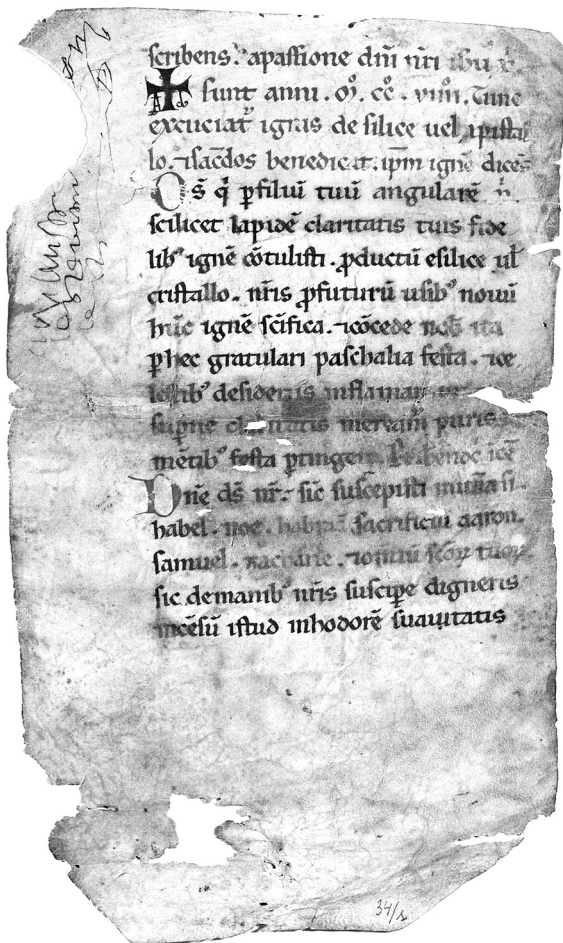 scribens. apassione dnī nr̄i ihū xp̄.
A ω sunt anni . ꝏ̊. cc̊ . viiiı̊. Tunc
excuciat᷑ ignis de silice uel xpistal
lo. ⁊ sac̄dos benedicat. ip̄m ignē dicēs
Ds̄ q̇ ꝑfiliū tuū angularē
scilicet lapidē claritatis tuis fide
lib᷒ ignē cōtulisti. ꝓductū esilice ul̄
cristallo. nr̄is ꝓfuturū usib᷒ nouū
hūc ignē sc̄ifica. ⁊cōcede nob̄ ita
ꝑ hec gratulari paschalia festa. ⁊ce
lestib᷒ desideriis inflamari
suꝑne claritatis meream᷑ puris
mētib᷒ festa ꝑtingere.
Dn̄e ds̄ nr̄ sic̄ suscepisti mun̄a
habel. noe. habrāe sacrificiū aaron.
samuel. zacharie. ⁊omniū sc̄oꝝ tuoꝝ
sic demanib᷒ nr̄is suscipe digneris
incēsū istud inhodorē suauitatis
34/2